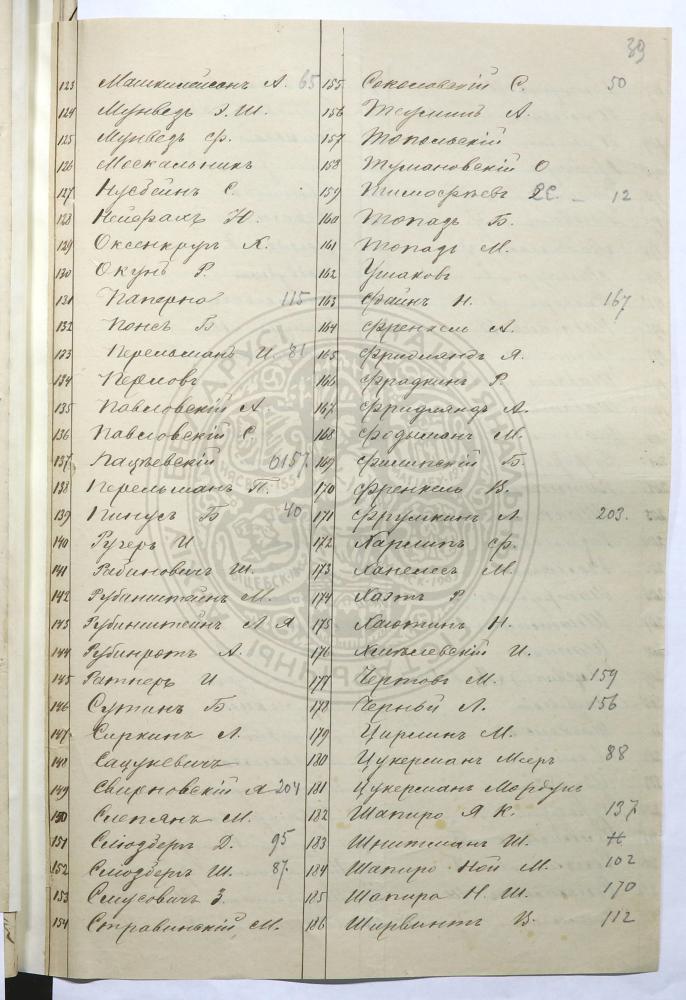 39
123 Машкилейсонъ А. 65
124 Мунведъ І. Ш.
125 Мунведъ Ф.
126 Москальникъ
127 Нусбеймъ С.
128 Нейфахъ Н.
129 Оксенкругъ К.
130 Окунь Р.
131 Паперно 115
132 Понсъ Б
133 Перельманъ И. 81
134 Перловъ
135 Павловскій А.
136 Павловскій С.
137 Пацѣевскій 157
138 Перельманъ П.
139 Пинусъ Б 40
140 Ручеръ И
141 Рабиновичъ Ш.
142 Рубинштейнъ М.
143 Рубинштейнъ Л Я
144 Рубинротъ А.
145 Ратнеръ И
146 Сутинъ Б
147 Сиркинъ Л.
148 Сацукевичъ
149 Свирновскій А 204
150 Слепянъ М.
151 Слюзбергъ Д. 95
152 Слюзбергъ Ш. 87.
153 Смусовичъ З.
154 Стравинскій М.
155 Соколовскій С. 50
156 Теумимъ А.
157 Топольскій
158 Тумановскій О
159 Тимофѣевъ 12
160 Топазъ Б.
161 Топазъ М.
162 Ушаковъ
163 Файнъ Н. 167
164 Френкель А.
165 Фридляндъ Я.
166 Фрадкинъ Р.
167 Фридляндъ А.
168 Фодиманъ М.
169 Филипскій Б.
170 Френкель В.
171 Фрумкинъ Л 203.
172 Харликъ Ф.
173 Ханелесъ М.
174 Хаэтъ Р
175 Хаютинъ Н.
176 Хмѣлевскій И.
177 Чертовъ М. 159
178 Черный Л. 156
179 Цирлинъ М.
180 Цукерманъ Мееръ 88
181 Цукерманъ Мордухъ
182 Шапиро Я К. 137
183 Шнитманъ Ш.
184 Шапиро Ной М. 102
185 Шапиро Н. Ш. 170
186 Ширвинтъ В. 112